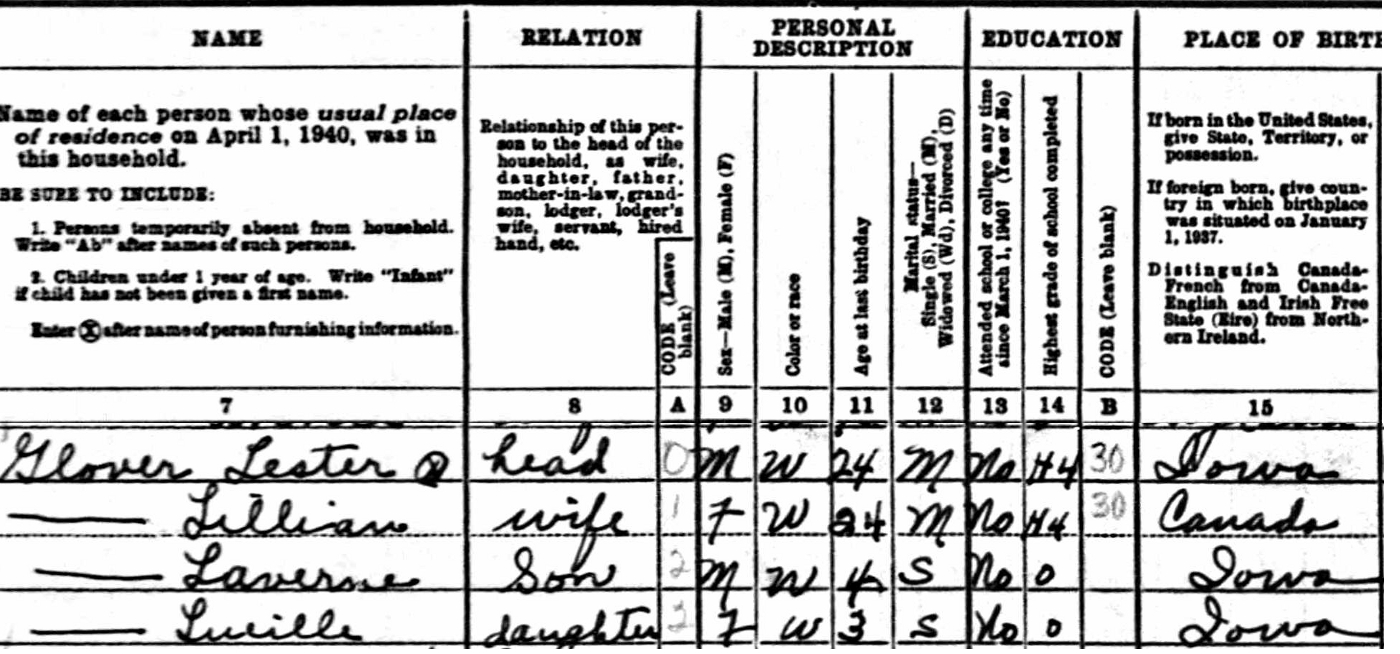 NAME RELATION PERSONAL DESCRIPTION EDUCATION PLACE OF BIRTH
Name of each person whose usual place
of residence on April 1, 1940, was in
this household.
BE SURE TO INCLUDE:
1. Persons temporarily absent from household.
Write "Ab" after names of such persons.
2. Children under 1 year of age. Write "Infant"
if child has not been given a first name.
Enter Ⓧ after name of person furnishing information.
Relationship of this per-
son to the head of the
household, as wife,
daughter, father,
mother-in-law, grand-
son, lodger, lodger's
wife, servant, hired
hand, etc.
CODE (Leave
blank)
Sex—Male (M), Female (F)
Color or race
Age at last birthday
Marital status—
Single (S), Married (M),
Widowed (Wd), Divorced (D)
Attended school or college any time
since March 1, 1940? (Yes or No)
Highest grade of school completed
CODE (Leave blank)
If born in the United States,
give State, Territory, or
possession.
If foreign born, give coun-
try in which birthplace
was situated on January
1, 1937.
Distinguish Canada-
French from Canada-
English and Irish Free
State (Eire) from North-
ern Ireland.
7 8 A 9 10 11 12 13 14 B 15
Glover Lester Ⓧ head 0 M W 24 M No H4 30 Iowa
— Lillian wife 1 F W 24 M No H4 30 Canada
— Laverne Son 2 M W 4 S No 0 Iowa
— Lucille daughter 2 F W 3 S No 0 Iowa